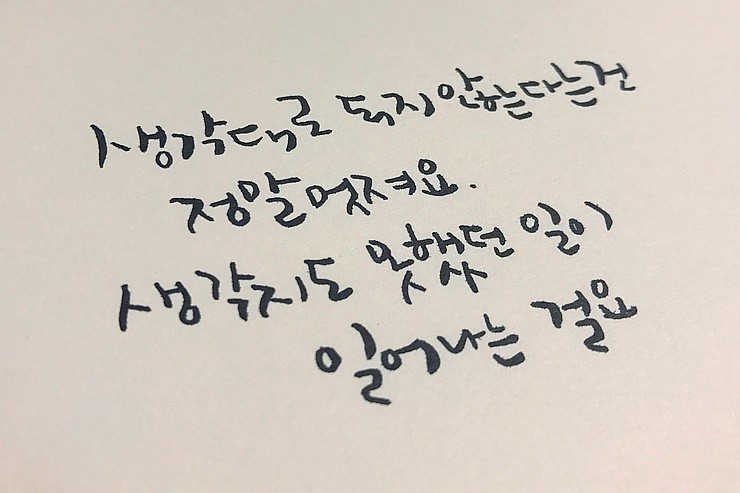 생각대로 되지 않는다는건
정말 멋져요.
생각지도 못했던 일이
일어나는 걸요